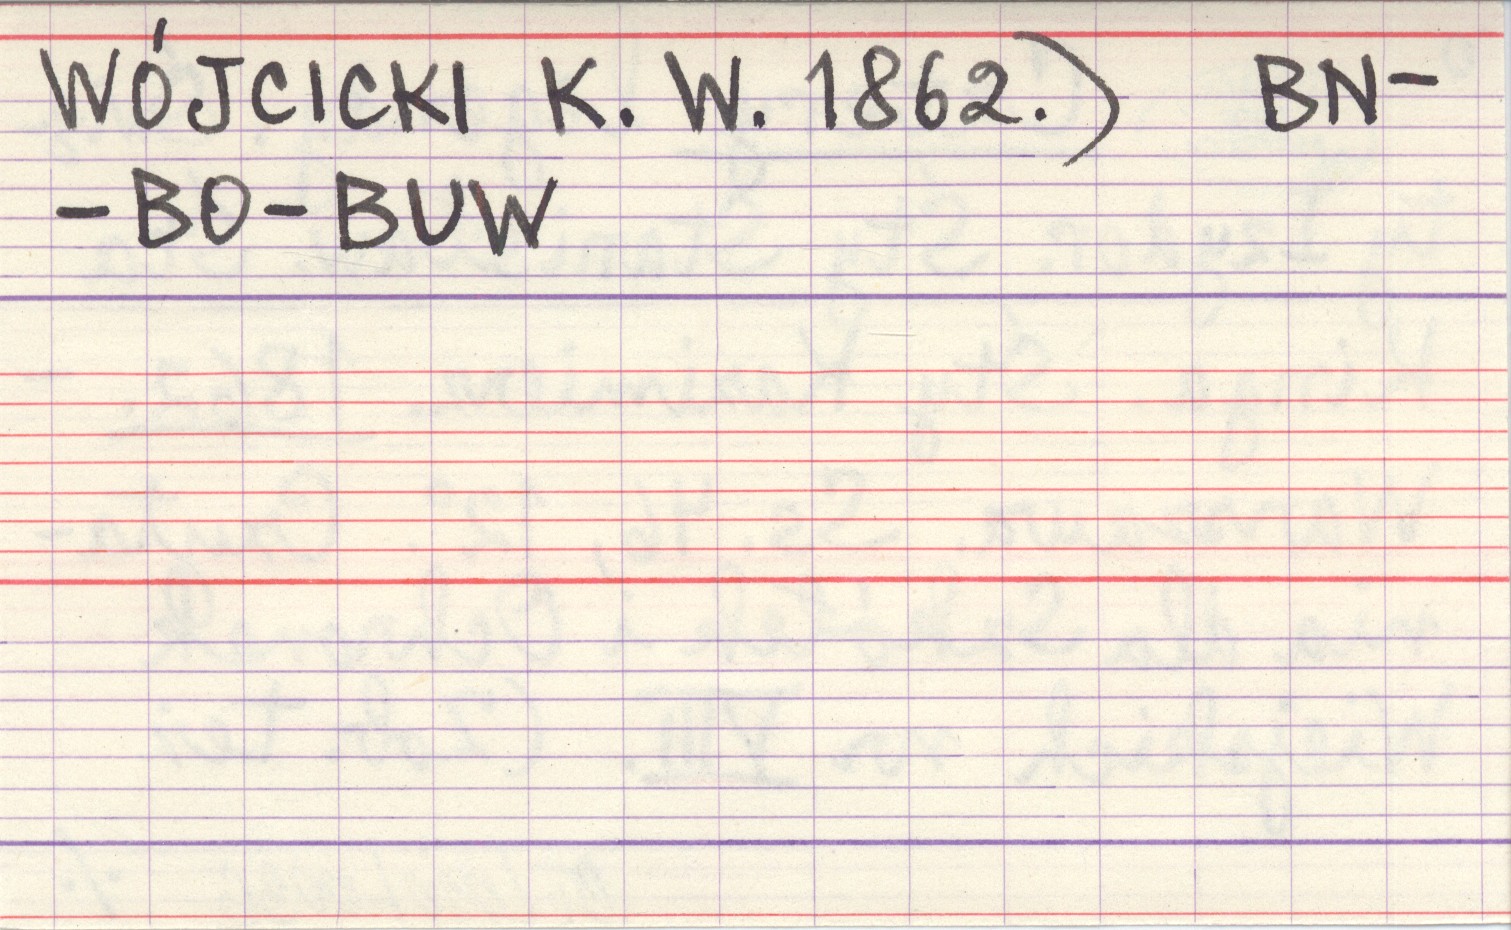 WÓJCICKI K. W. 1862.) BN-
-BO-BUW